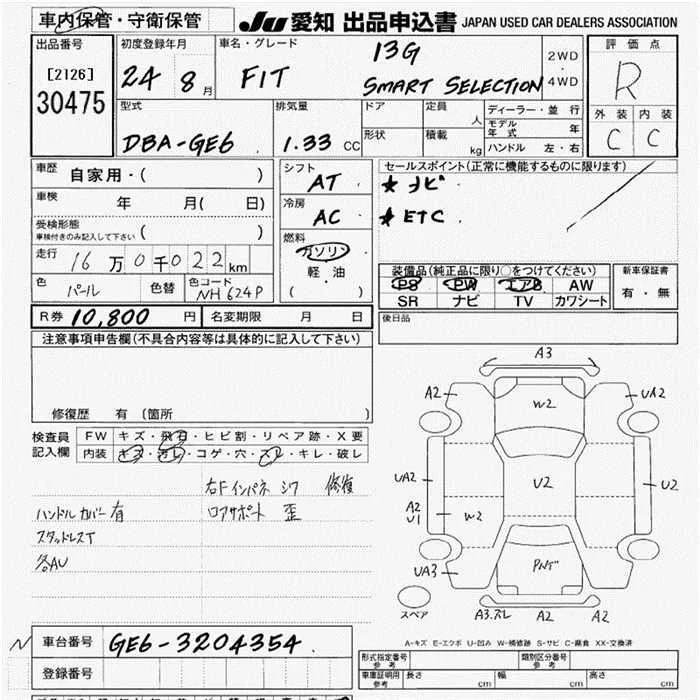 車内保管・守衛保管 JU 愛知 出品申込書 JAPAN USED CAR DEALERS ASSOCIATION
出品番号 初度登録年月 車名・グレード 評価点
[2126] 24 8 月 FIT 13G 2WD・4WD R
30475 SMART SELECTION
型式 排気量 ドア 定員 人 ディーラー・並行 外装 内装
モデル年式 年
DBA-GE6 1.33 CC 形状 積載 kg ハンドル 左・右 C C
車歴 自家用・( ) シフト AT セールスポイント(正常に機能するものに限ります)
★ナビ
車検 年 月( 日) 冷房 AC ★ETC
受検形態
車検付きのみ記入して下さい ( ) 燃料 ガソリン
走行 16万0千022km 軽油 装備品(純正品に限り○をつけてください) 新車保証書
色 パール 色替 色コード NH624P ( ) PS PW エアB AW 有・無
SR ナビ TV カワシート
R券 10,800 円 名変期限 月 日 後日品
注意事項申告欄(不具合内容等は具体的に記入して下さい)
修復歴 有 (箇所 )
検査員記入欄 FW キズ・飛石・ヒビ割・リペア跡・X要
内装 キズ・汚レ・コゲ・穴・スレ・キレ・破レ
右Fインパネ シワ 修復
ハンドルカバー有 ロアサポート 歪
スタッドレスT
各AU
A3
A2 W2 UA2
UA2 U2 U2
A2
U1 W2
UA3 PNT A2
スペア A3.スレ A2 A2
A-キズ E-エクボ U-凹み W-補修跡 S-サビ C-腐食 XX-交換済
N 車台番号 GE6-3204354
登録番号
形式指定番号 参考 類別区分番号 参考
車庫証明用 参考 長さ cm 幅 cm 高さ cm